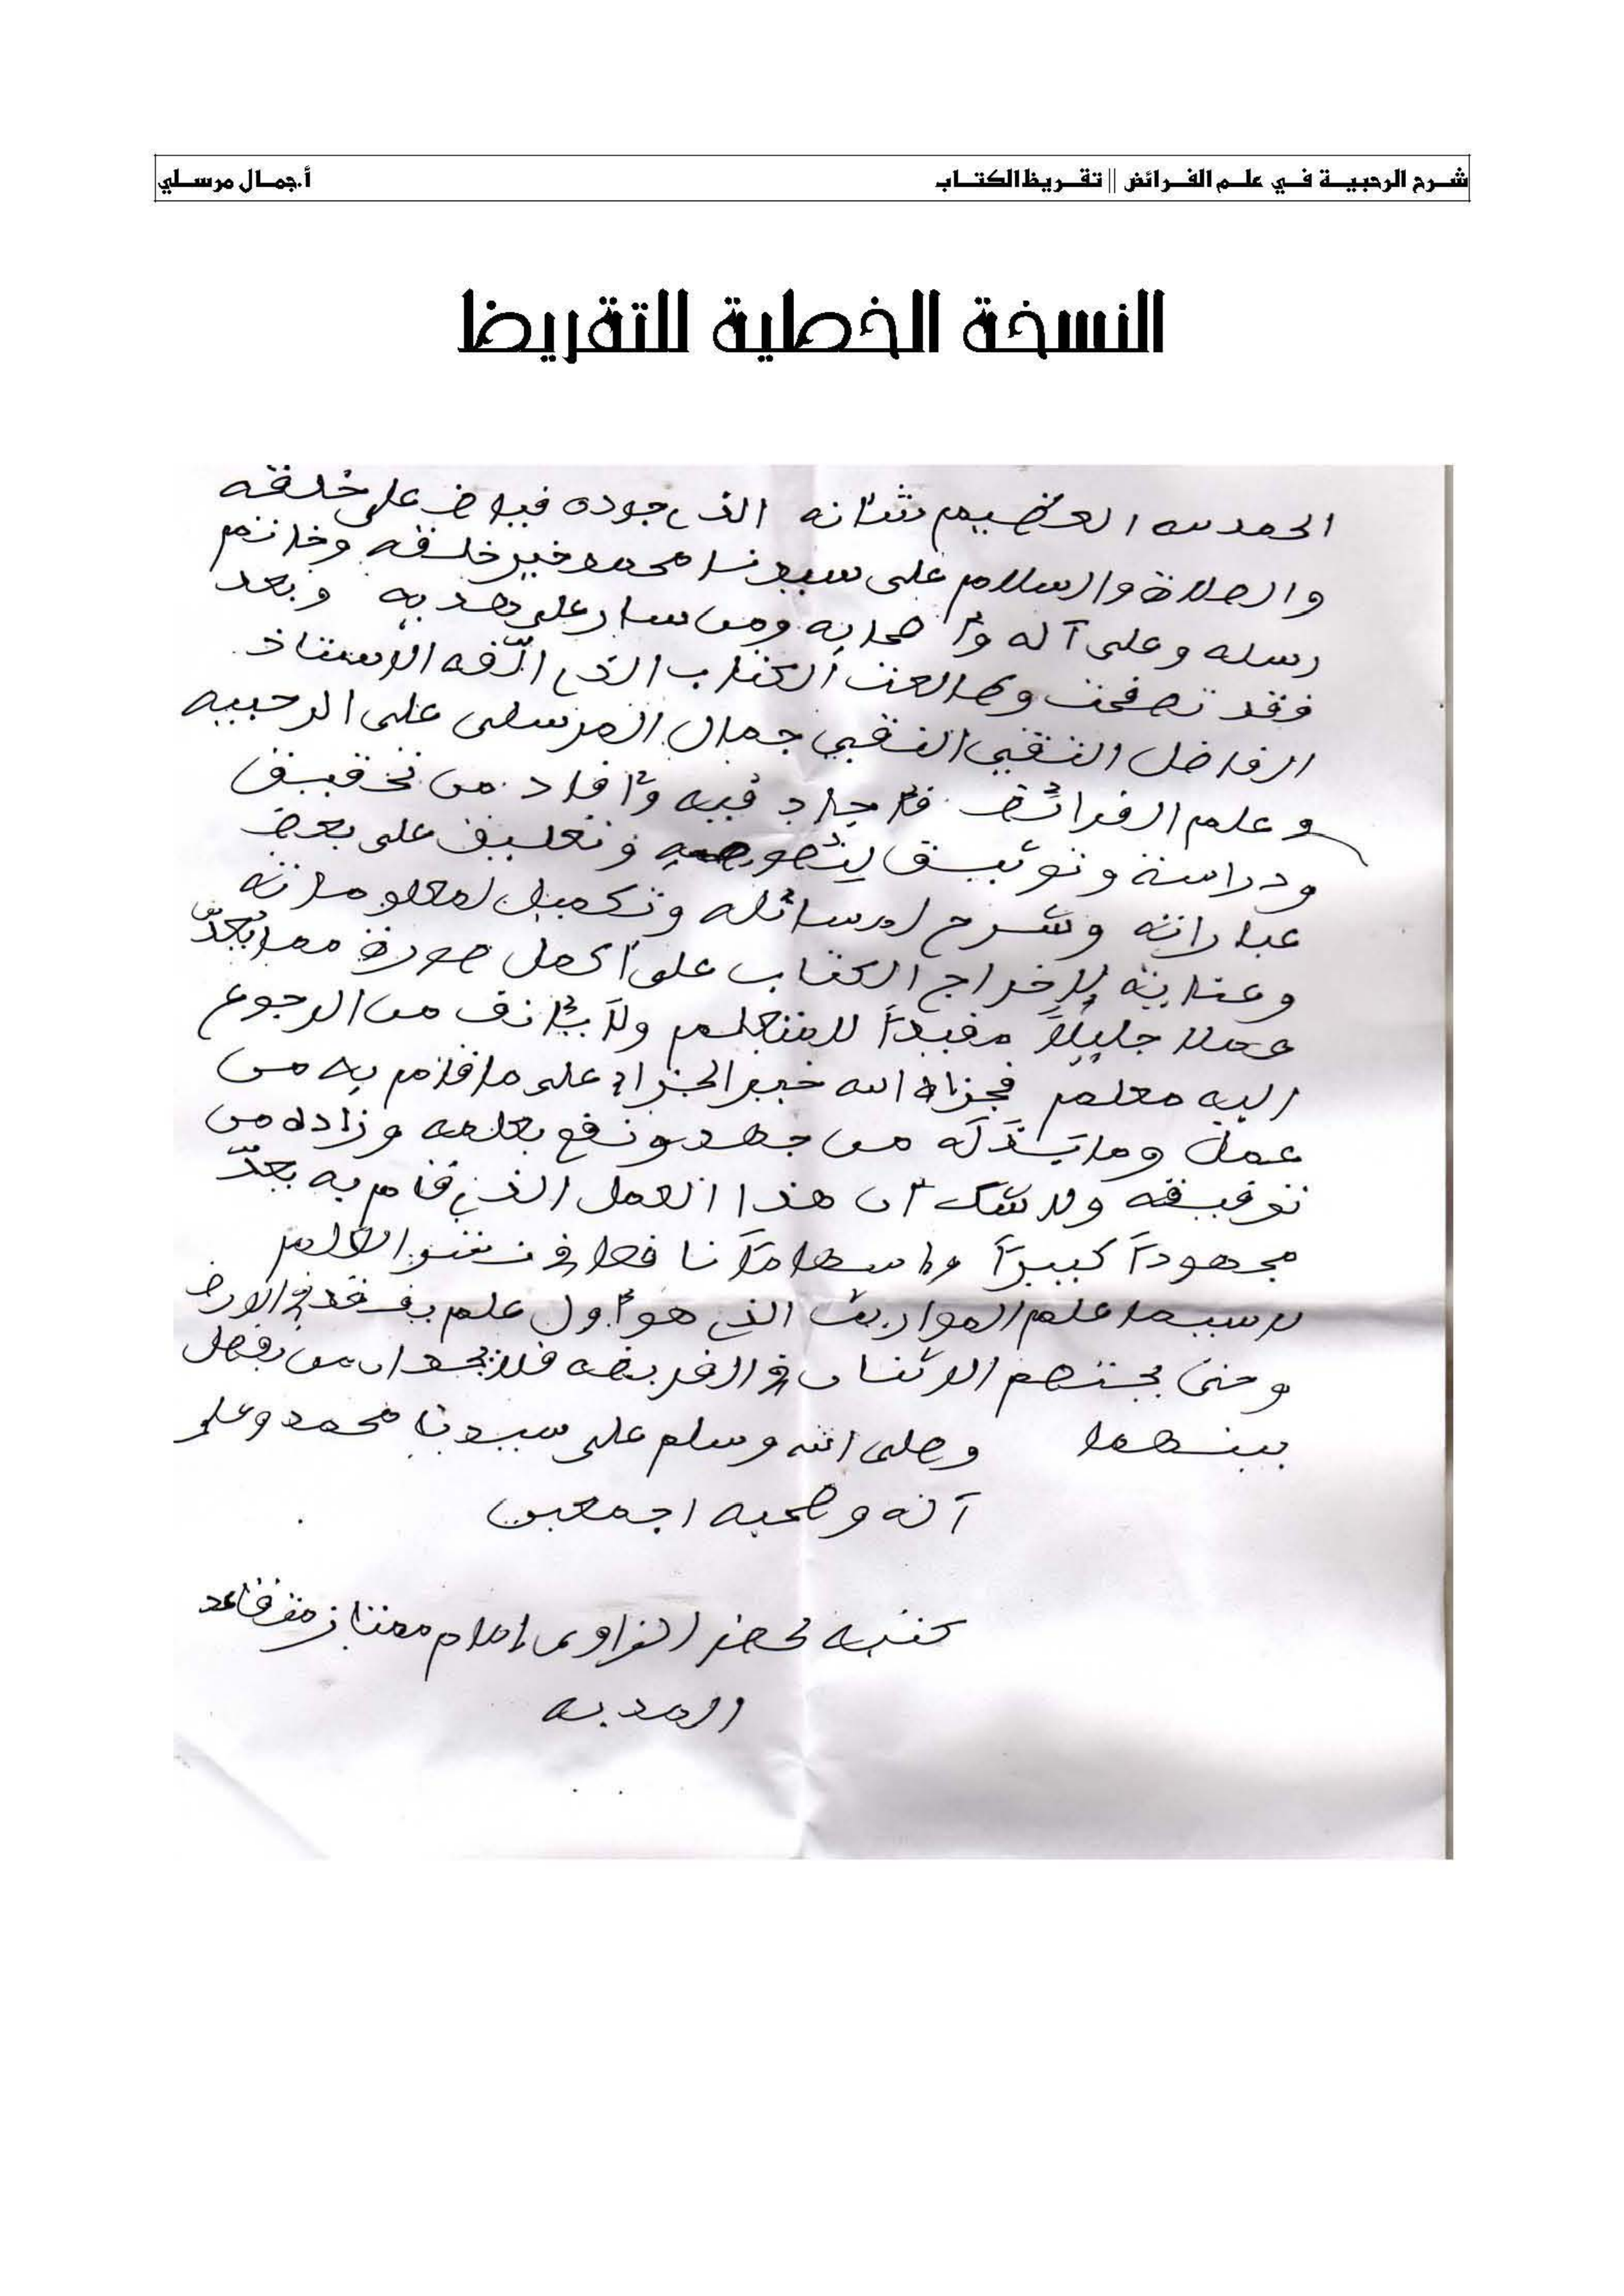 شرح الرحبية في علم الفرائض || تقريظ الكتاب
أ.جمال مرسلي
النسخة الخطية للتقريظ
الحمد لله العظيم شأنه الذي جوده فياض على خلقه
والصلاة والسلام على سيدنا محمد خير خلقه وخاتم
رسله وعلى آله وأصحابه ومن سار على هديه وبعد
فقد تصفحت وطالعت الكتاب الذي ألّفه الاستاذ
الفاضل التقي النقي جمال المرسلي على الرحبيه
وعلم الفرائض فأجاد فيه وأفاد من تحقيق
ودراسة وتوثيق لنصوصه وتعليق على بعض
عباراته وشرح لمسائله وتكميل لمعلوماته
وعنايته لإخراج الكتاب على أكمل صورة مما يُعَدّ
عملا جليلاً مفيداً للمتعلم ولا يأنف من الرجوع
اليه معلم فجزاه الله خير الجزاء على ما قام به من
عمل وما بذله من جهد ونفع بعلمه وزاده من
توفيقه ولا شك أن هذا العمل الذي قام به يعدّ
مجهوداً كبيراً وإسهاماً نافعا في نشر العلم
لا سيما علم المواريث الذي هو أول علم يفقد في الارض
وحتى يختصم الاثنان في الفريضه فلا يجدان من يفصل
بينهما وصلى الله وسلم على سيدنا محمد وعلى
آله وصحبه اجمعين
كتبه لخضر الزاوي إمام ممتاز متقاعد
المديه